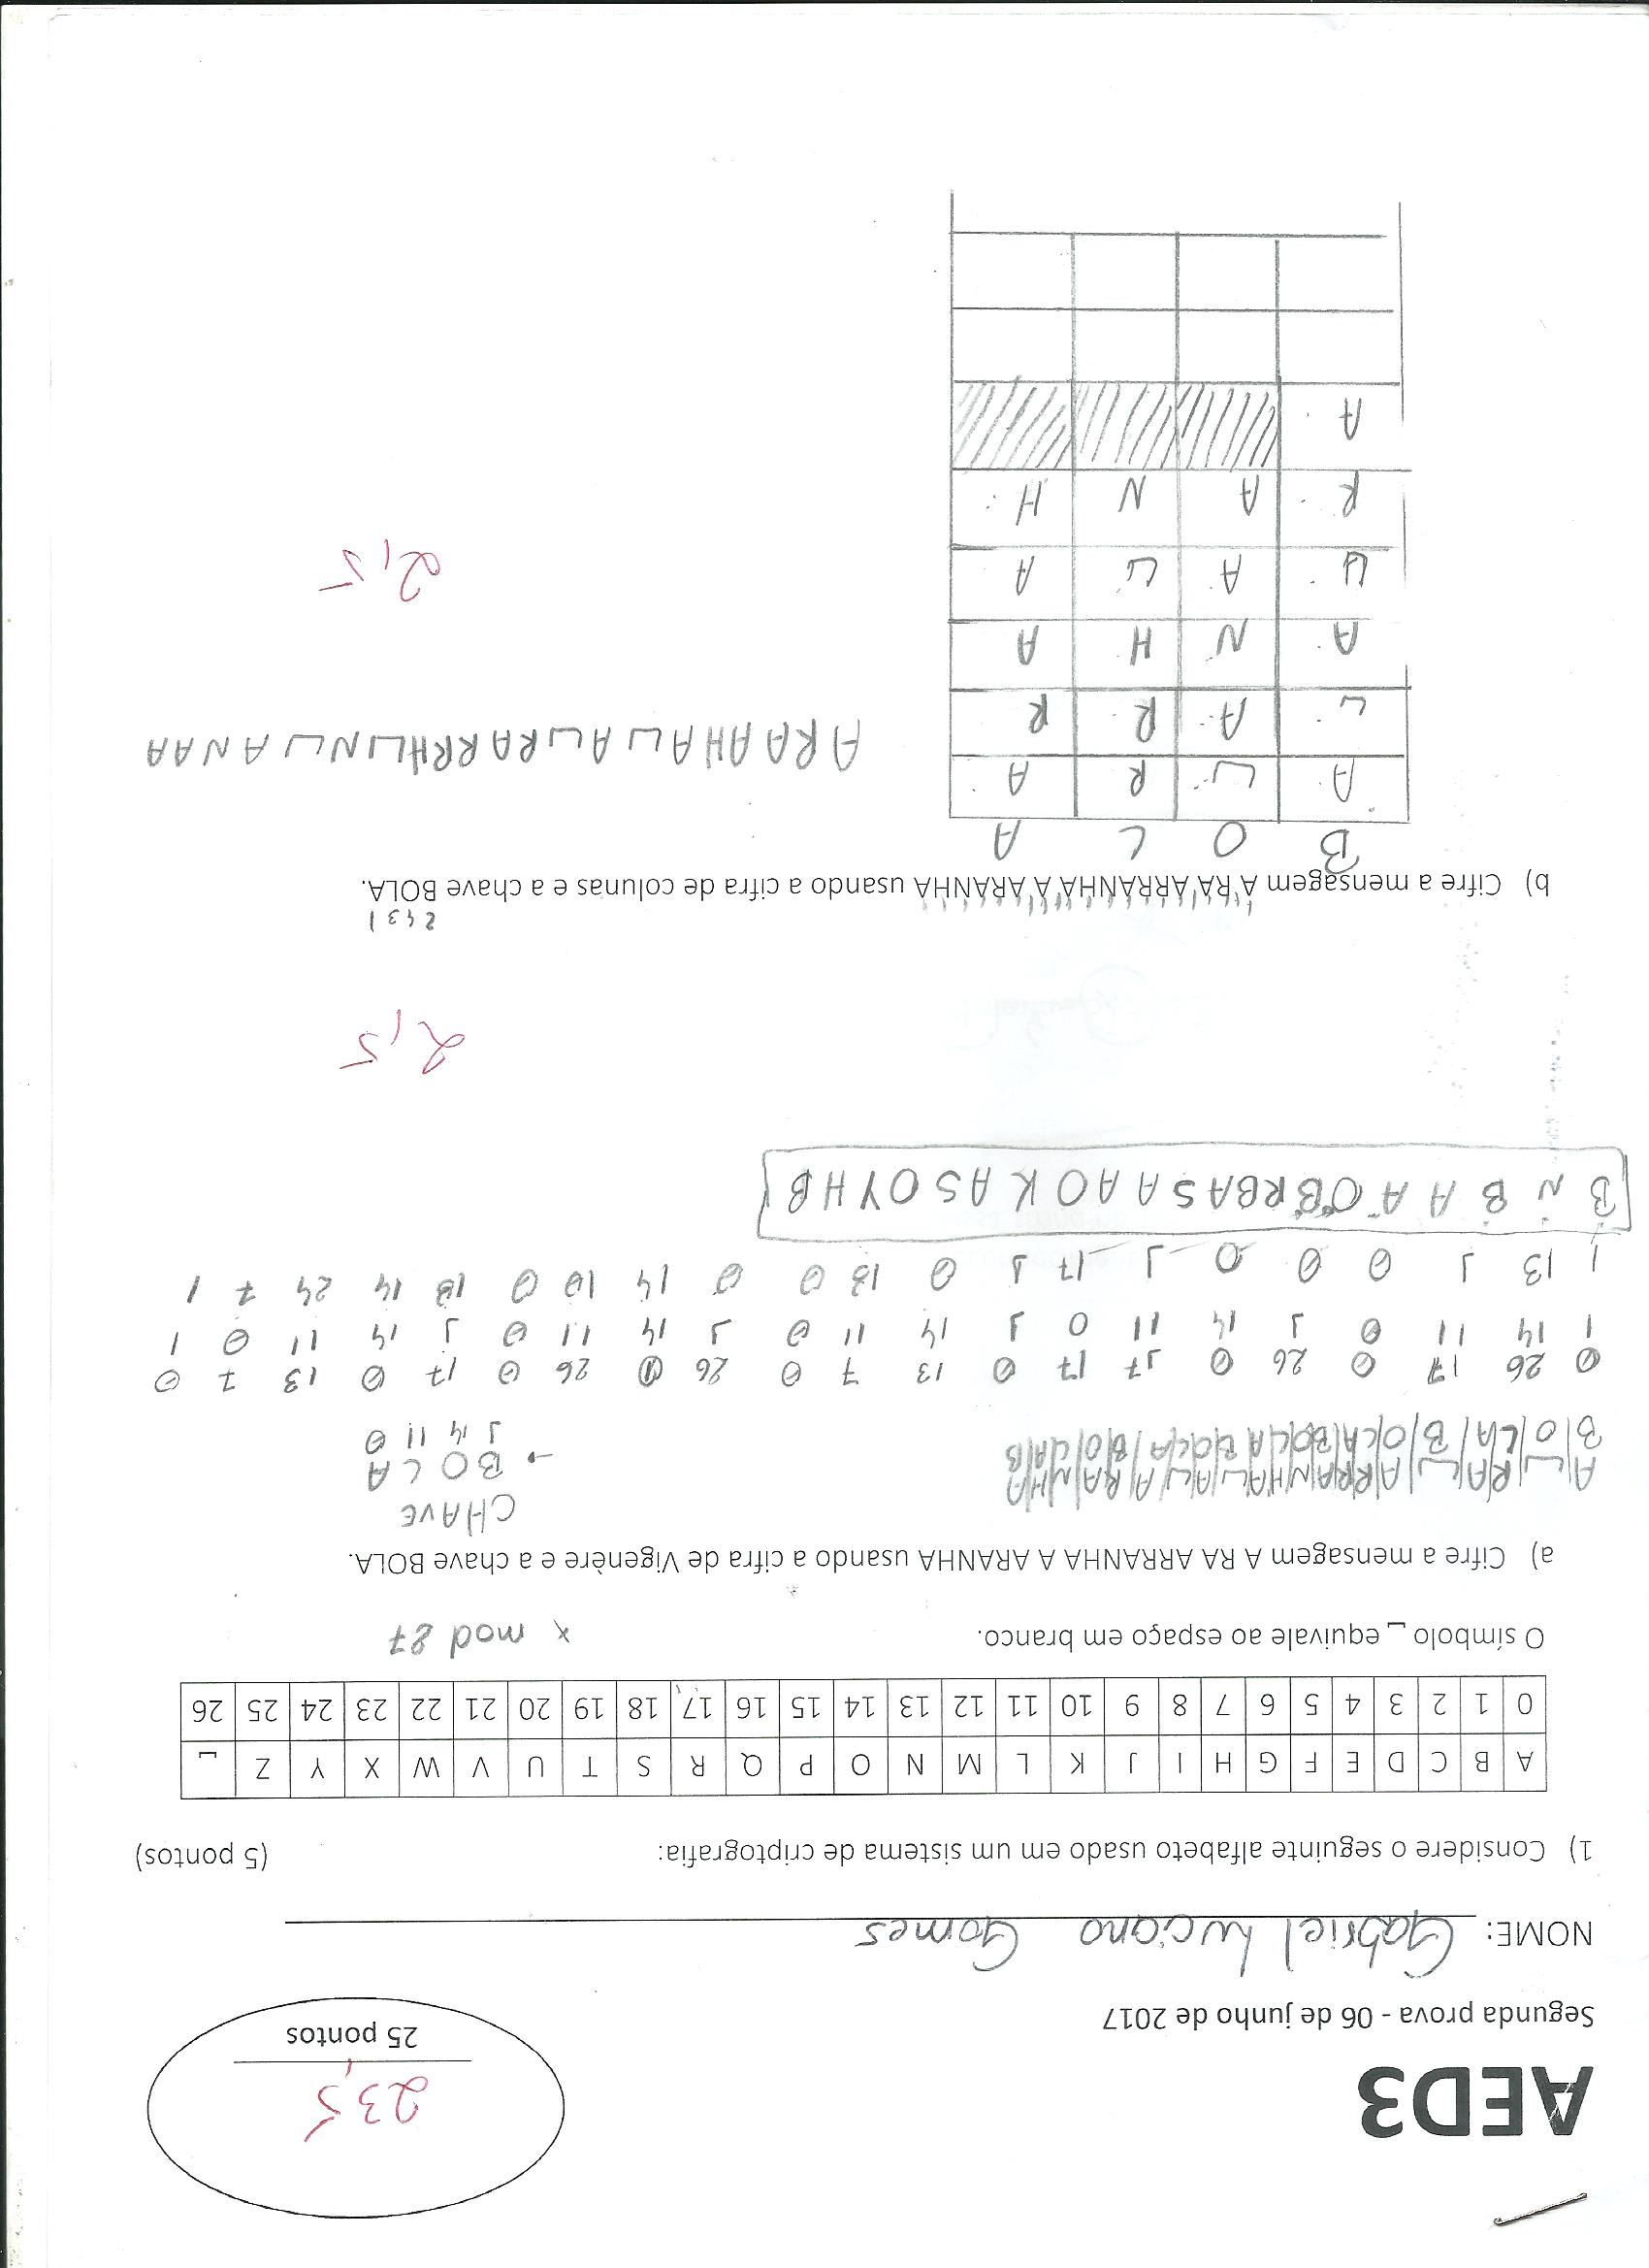 23,5
AED3
25 pontos
Segunda prova - 06 de junho de 2017
NOME: Gabriel Luciano Gomes
1) Considere o seguinte alfabeto usado em um sistema de criptografia: (5 pontos)
A B C D E F G H I J K L M N O P Q R S T U V W X Y Z ⎵
0 1 2 3 4 5 6 7 8 9 10 11 12 13 14 15 16 17 18 19 20 21 22 23 24 25 26
O símbolo ⎵ equivale ao espaço em branco. x mod 27
a) Cifre a mensagem A RA ARRANHA A ARANHA usando a cifra de Vigenère e a chave BOLA.
CHAVE
A ⎵ R A ⎵ A R R A N H A ⎵ A ⎵ A R A N H A
→ B O L A
B O L A B O L A B O L A B O L A B O L A B
1 14 11 0
0 26 17 0 26 0 17 17 0 13 7 0 26 0 26 0 17 0 13 7 0
1 14 11 0 1 14 11 0 1 14 11 0 1 14 11 0 1 14 11 0 1
1 13 1 0 0 0 1 17 1 0 18 0 0 14 10 0 18 14 24 7 1
B N B A A O B R B A S A A O K A S O Y H B
2,5
2 4 3 1
b) Cifre a mensagem A RA ARRANHA A ARANHA usando a cifra de colunas e a chave BOLA.
B O L A
A ⎵ R A
⎵ A R R
A N H A
⎵ A ⎵ A
R A N H
A
ARAAHA⎵A⎵RARRH⎵N⎵ANAA
2,5